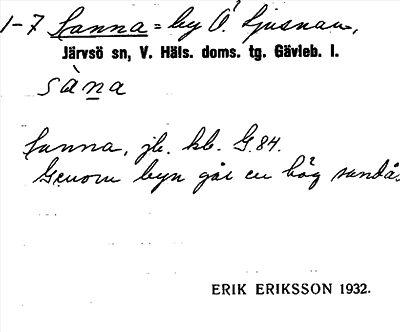 1-7 Sanna = by Ö. Ljusnan,
Järvsö sn, V. Häls. doms. tg. Gävleb. l.
sàna
Sanna, jb. kb. G.84.
Genom byn går en hög sandås
ERIK ERIKSSON 1932.